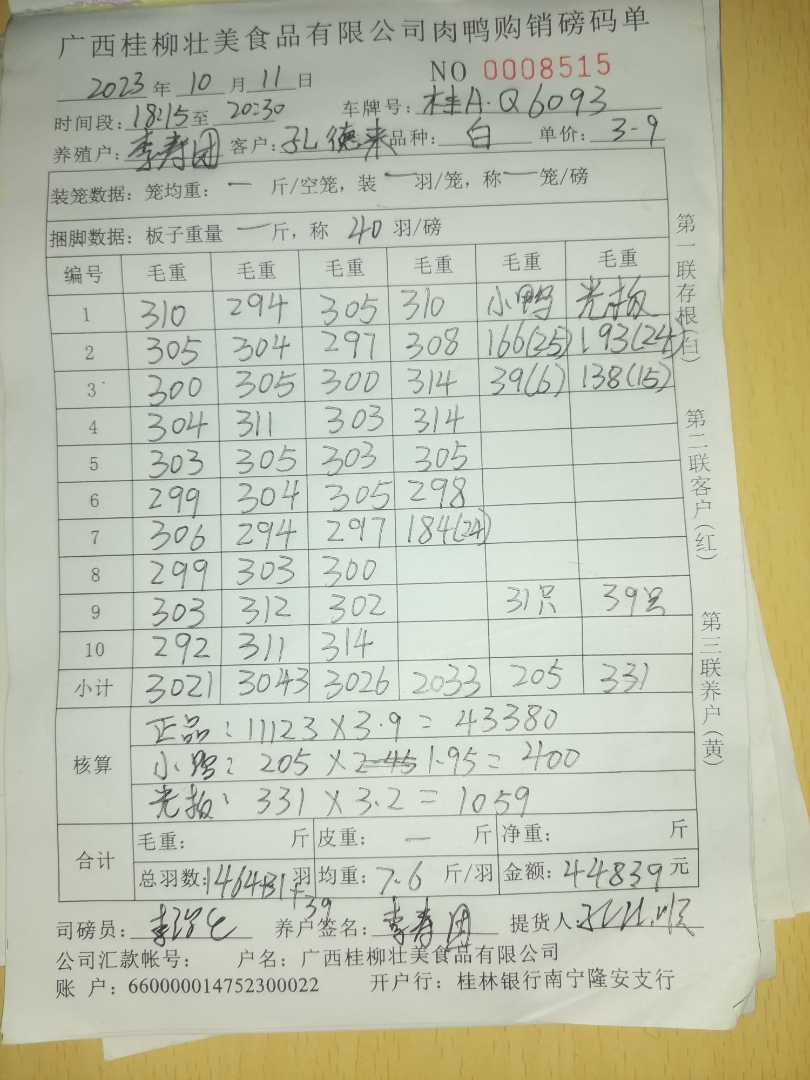 广西桂柳壮美食品有限公司肉鸭购销磅码单
2023年 10月 11日 NO 0008515
时间段:18:15至 20:30 车牌号:桂A·Q6093
养殖户:李寿团 客户:孔德来 品种:白 单价:3-9
装笼数据:笼均重:一 斤/空笼,装一羽/笼,称一笼/磅
捆脚数据:板子重量 一斤,称 40 羽/磅
编号 毛重 毛重 毛重 毛重 毛重 毛重
1 310 294 305 310 小鸭 光板
2 305 304 297 308 166(25) 193(24)
3 300 305 300 314 39(6) 138(15)
4 304 311 303 314
5 303 305 303 305
6 299 304 305 298
7 306 294 297 184(24)
8 299 303 300
9 303 312 302 31只 39只
10 292 311 314
小计 3021 3043 3026 2033 205 331
核算 正品:11123×3.9=43380
小鸭:205×2-45 1.95=400
光板:331×3.2=1059
合计 毛重: 斤 皮重: 一 斤 净重: 斤
总羽数:1464+31+39羽 均重:7-6 斤/羽 金额:44839元
司磅员: 养户签名:李寿团 提货人:
公司汇款帐号: 户名:广西桂柳壮美食品有限公司
账 户:660000014752300022 开户行:桂林银行南宁隆安支行
第一联存根(白)
第二联客户(红)
第三联养户(黄)